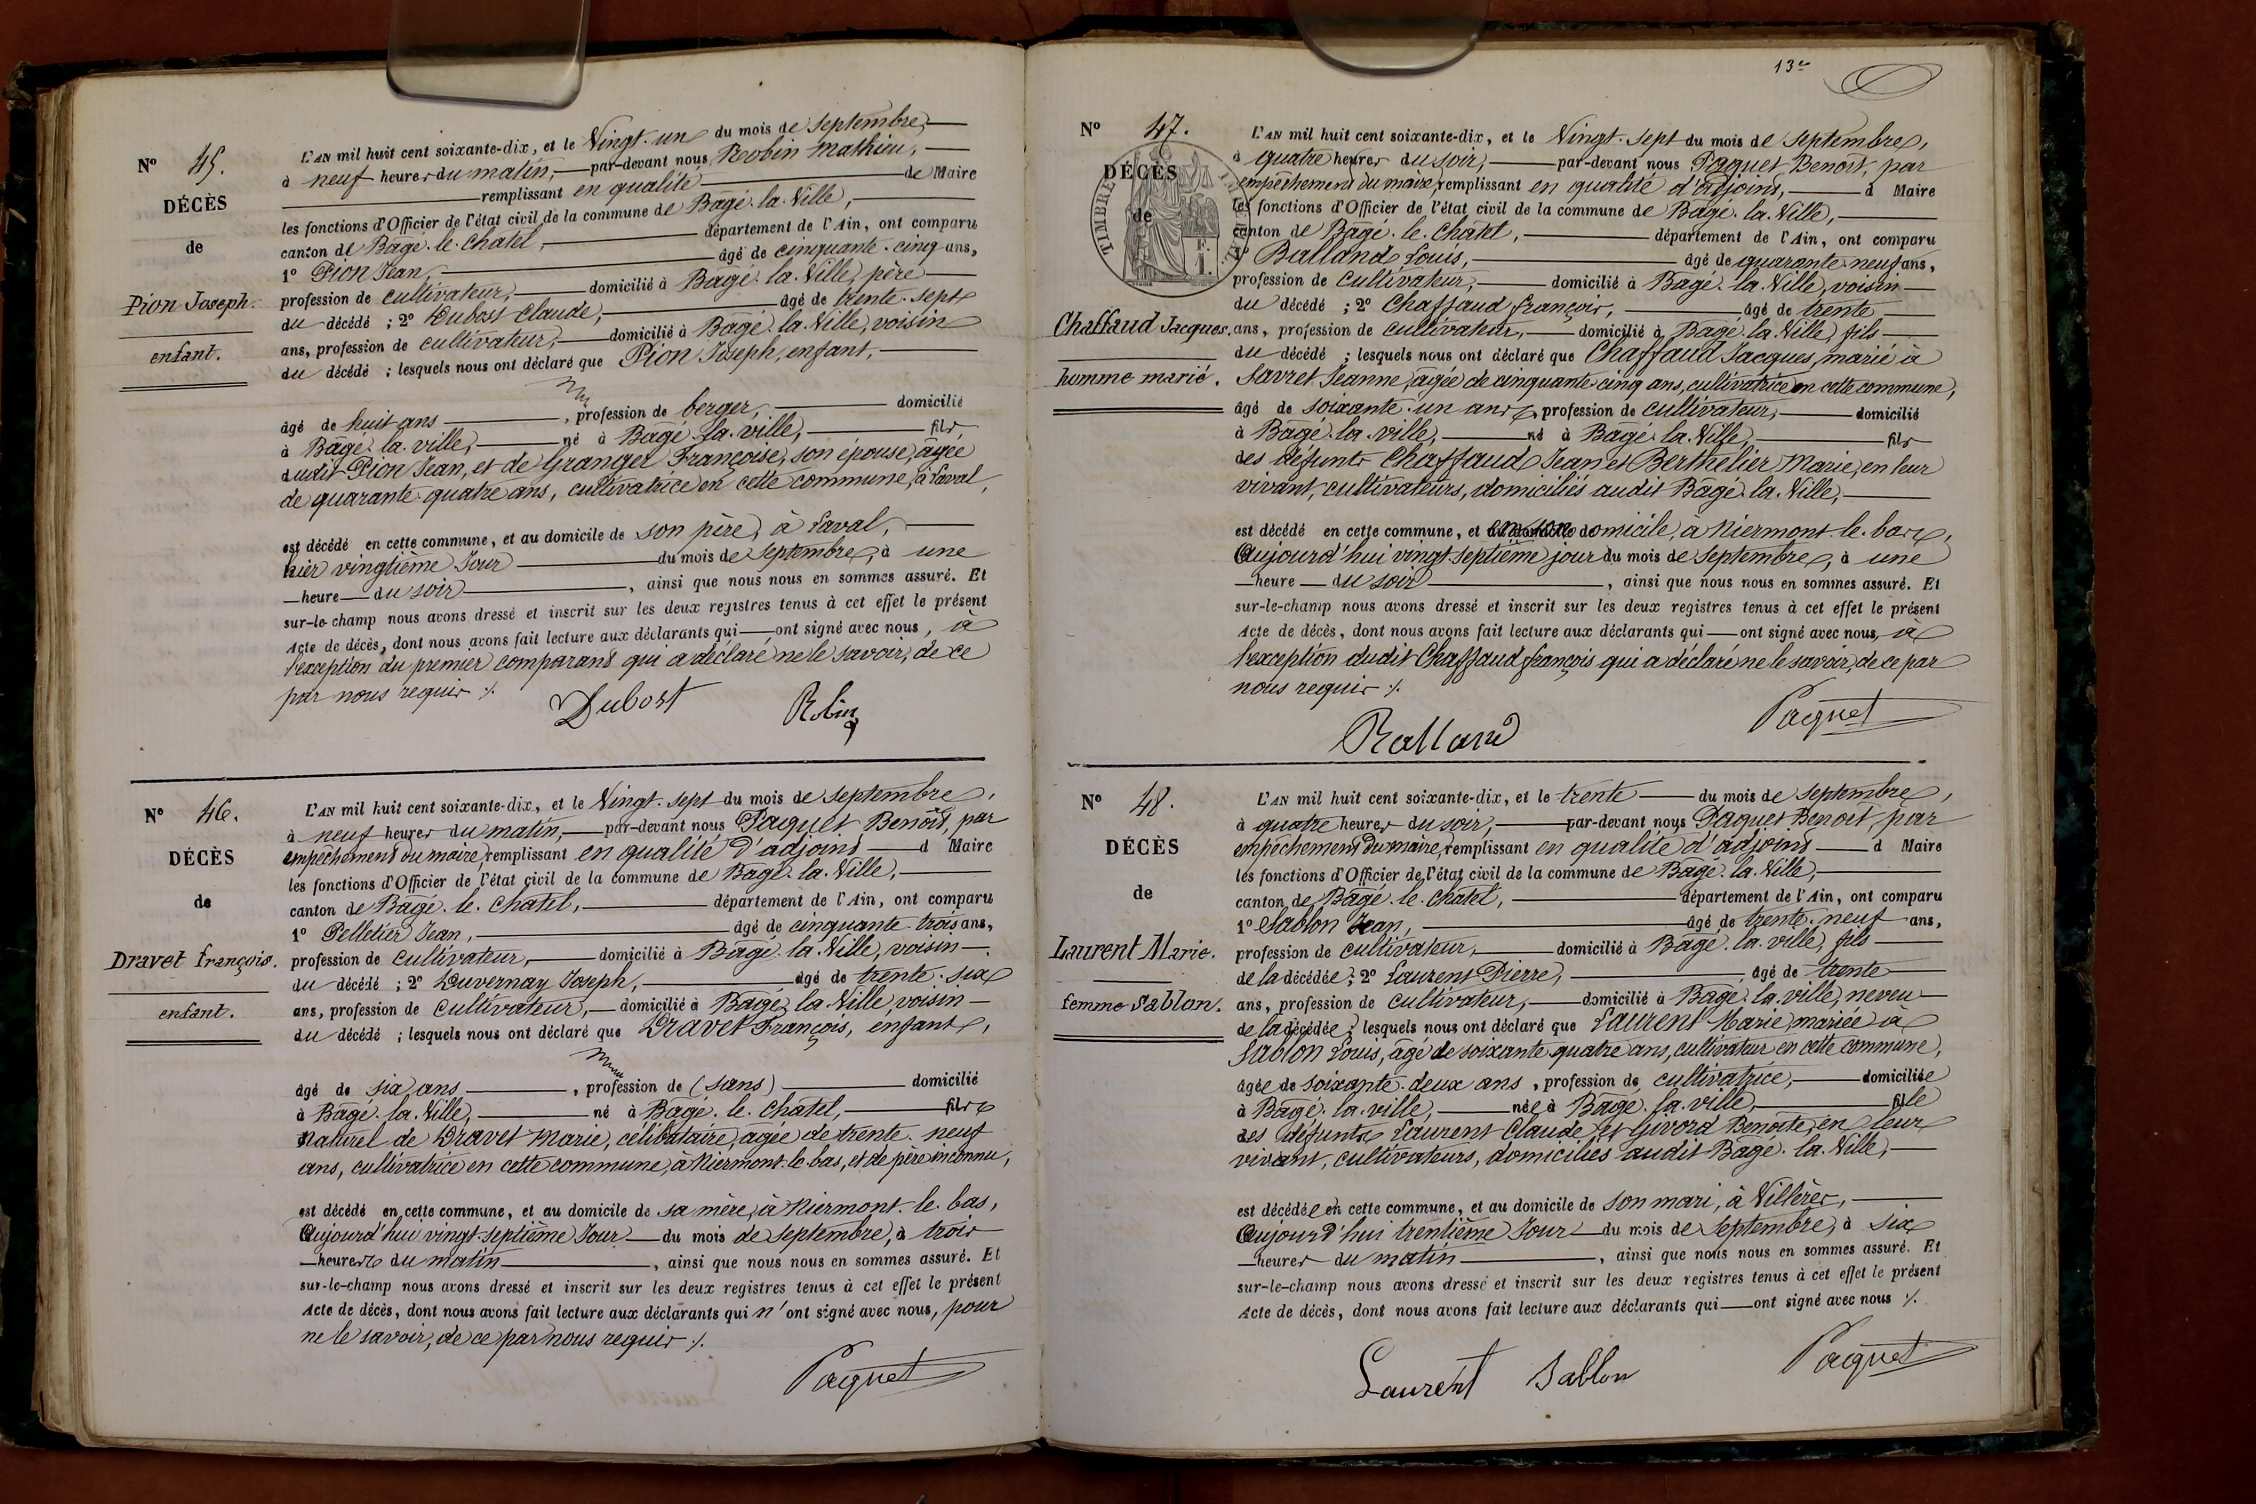 N° 45.
DÉCÈS
de
Pion Joseph.
enfant.
L'AN mil huit cent soixante-dix, et le Vingt-un du mois de Septembre,
à neuf heures du matin, par-devant nous Robin Mathieu,
remplissant en qualité de Maire
les fonctions d'Officier de l'état civil de la commune de Bâgé-la-Ville,
canton de Bâgé-le-Chatel, département de l'Ain, ont comparu
1° Pion Jean, âgé de cinquante-cinq ans,
profession de cultivateur, domicilié à Bâgé-la-Ville, père
du décédé ; 2° Dubost Claude, âgé de trente-sept
ans, profession de cultivateur, domicilié à Bâgé-la-Ville, voisin
du décédé ; lesquels nous ont déclaré que Pion Joseph, enfant,
âgé de huit ans, profession de berger, domicilié
à Bâgé-la-ville, né à Bâgé-la-ville, fils
dudit Pion Jean, et de Granger Françoise, son épouse, âgée
de quarante-quatre ans, cultivatrice en cette commune, à Laval,
est décédé en cette commune, et au domicile de son père, à Laval,
hier vingtième Jour du mois de Septembre, à une
heure du soir, ainsi que nous nous en sommes assuré. Et
sur-le-champ nous avons dressé et inscrit sur les deux registres tenus à cet effet le présent
Acte de décès, dont nous avons fait lecture aux déclarants qui ont signé avec nous, à
l'exception du premier comparant qui a déclaré ne le savoir, de ce
par nous requis ./.
Dubost Robin
N° 46.
DÉCÈS
de
Dravet François.
enfant.
L'AN mil huit cent soixante-dix, et le Vingt-sept du mois de Septembre,
à neuf heures du matin, par-devant nous Paquet Benoît, par
empêchement du maire, remplissant en qualité d'adjoint d Maire
les fonctions d'Officier de l'état civil de la commune de Bâgé-la-Ville,
canton de Bâgé-le-Chatel, département de l'Ain, ont comparu
1° Pelletier Jean, âgé de cinquante-trois ans,
profession de cultivateur, domicilié à Bâgé-la-Ville, voisin
du décédé ; 2° Duvernay Joseph, âgé de trente-six
ans, profession de cultivateur, domicilié à Bâgé-la-Ville, voisin
du décédé ; lesquels nous ont déclaré que Dravet François, enfant,
âgé de six ans, profession de (sans) domicilié
à Bâgé-la-Ville, né à Bâgé-le-Chatel, fils
naturel de Dravet Marie, célibataire, âgée de trente-neuf
ans, cultivatrice en cette commune, à Niermont-le-bas, et de père inconnu,
est décédé en cette commune, et au domicile de sa mère, à Niermont-le-bas,
Aujourd'hui vingt-septième Jour du mois de Septembre, à trois
heures du matin, ainsi que nous nous en sommes assuré. Et
sur-le-champ nous avons dressé et inscrit sur les deux registres tenus à cet effet le présent
Acte de décès, dont nous avons fait lecture aux déclarants qui n'ont signé avec nous, pour
ne le savoir, de ce par nous requis ./.
Paquet
13e
N° 47.
DÉCÈS
de
Chaffaud Jacques.
homme marié.
TIMBRE
L'AN mil huit cent soixante-dix, et le Vingt-sept du mois de Septembre,
à quatre heures du soir, par-devant nous Paquet Benoît, par
empêchement du maire, remplissant en qualité d'adjoint, d Maire
les fonctions d'Officier de l'état civil de la commune de Bâgé-la-Ville,
canton de Bâgé-le-Chatel, département de l'Ain, ont comparu
1° Balland Louis, âgé de quarante-neuf ans,
profession de cultivateur, domicilié à Bâgé-la-Ville, voisin
du décédé ; 2° Chaffaud François, âgé de trente
ans, profession de cultivateur, domicilié à Bâgé-la-Ville, fils
du décédé ; lesquels nous ont déclaré que Chaffaud Jacques, marié à
Savret Jeanne, âgée de cinquante-cinq ans, cultivatrice en cette commune,
âgé de soixante-un ans, profession de cultivateur, domicilié
à Bâgé-la-ville, né à Bâgé-la-Ville, fils
des défunts Chaffaud Jean et Berthelier Marie, en leur
vivant, cultivateurs, domiciliés audit Bâgé-la-Ville,
est décédé en cette commune, et en son domicile, à Niermont-le-bas,
Aujourd'hui vingt-septième jour du mois de Septembre, à une
heure du soir, ainsi que nous nous en sommes assuré. Et
sur-le-champ nous avons dressé et inscrit sur les deux registres tenus à cet effet le présent
Acte de décès, dont nous avons fait lecture aux déclarants qui ont signé avec nous, à
l'exception dudit Chaffaud François qui a déclaré ne le savoir, de ce par
nous requis ./.
Balland Paquet
N° 48.
DÉCÈS
de
Laurent Marie.
femme Sablon.
L'AN mil huit cent soixante-dix, et le trente du mois de Septembre,
à quatre heures du soir, par-devant nous Paquet Benoît, par
empêchement du maire, remplissant en qualité d'adjoint d Maire
les fonctions d'Officier de l'état civil de la commune de Bâgé-la-Ville,
canton de Bâgé-le-Chatel, département de l'Ain, ont comparu
1° Sablon Jean, âgé de trente-neuf ans,
profession de cultivateur, domicilié à Bâgé-la-ville, fils
de la décédée ; 2° Laurent Pierre, âgé de trente
ans, profession de cultivateur, domicilié à Bâgé-la-ville, neveu
de la décédée ; lesquels nous ont déclaré que Laurent Marie, mariée à
Sablon Louis, âgé de soixante-quatre ans, cultivateur en cette commune,
âgée de soixante-deux ans, profession de cultivatrice, domiciliée
à Bâgé-la-ville, née à Bâgé-la-ville, fille
des défunts Laurent Claude et Givord Benoîte, en leur
vivant, cultivateurs, domiciliés audit Bâgé-la-Ville,
est décédée en cette commune, et au domicile de son mari, à Villères,
Aujourd'hui trentième Jour du mois de Septembre, à six
heures du matin, ainsi que nous nous en sommes assuré. Et
sur-le-champ nous avons dressé et inscrit sur les deux registres tenus à cet effet le présent
Acte de décès, dont nous avons fait lecture aux déclarants qui ont signé avec nous ./.
Laurent Sablon Paquet